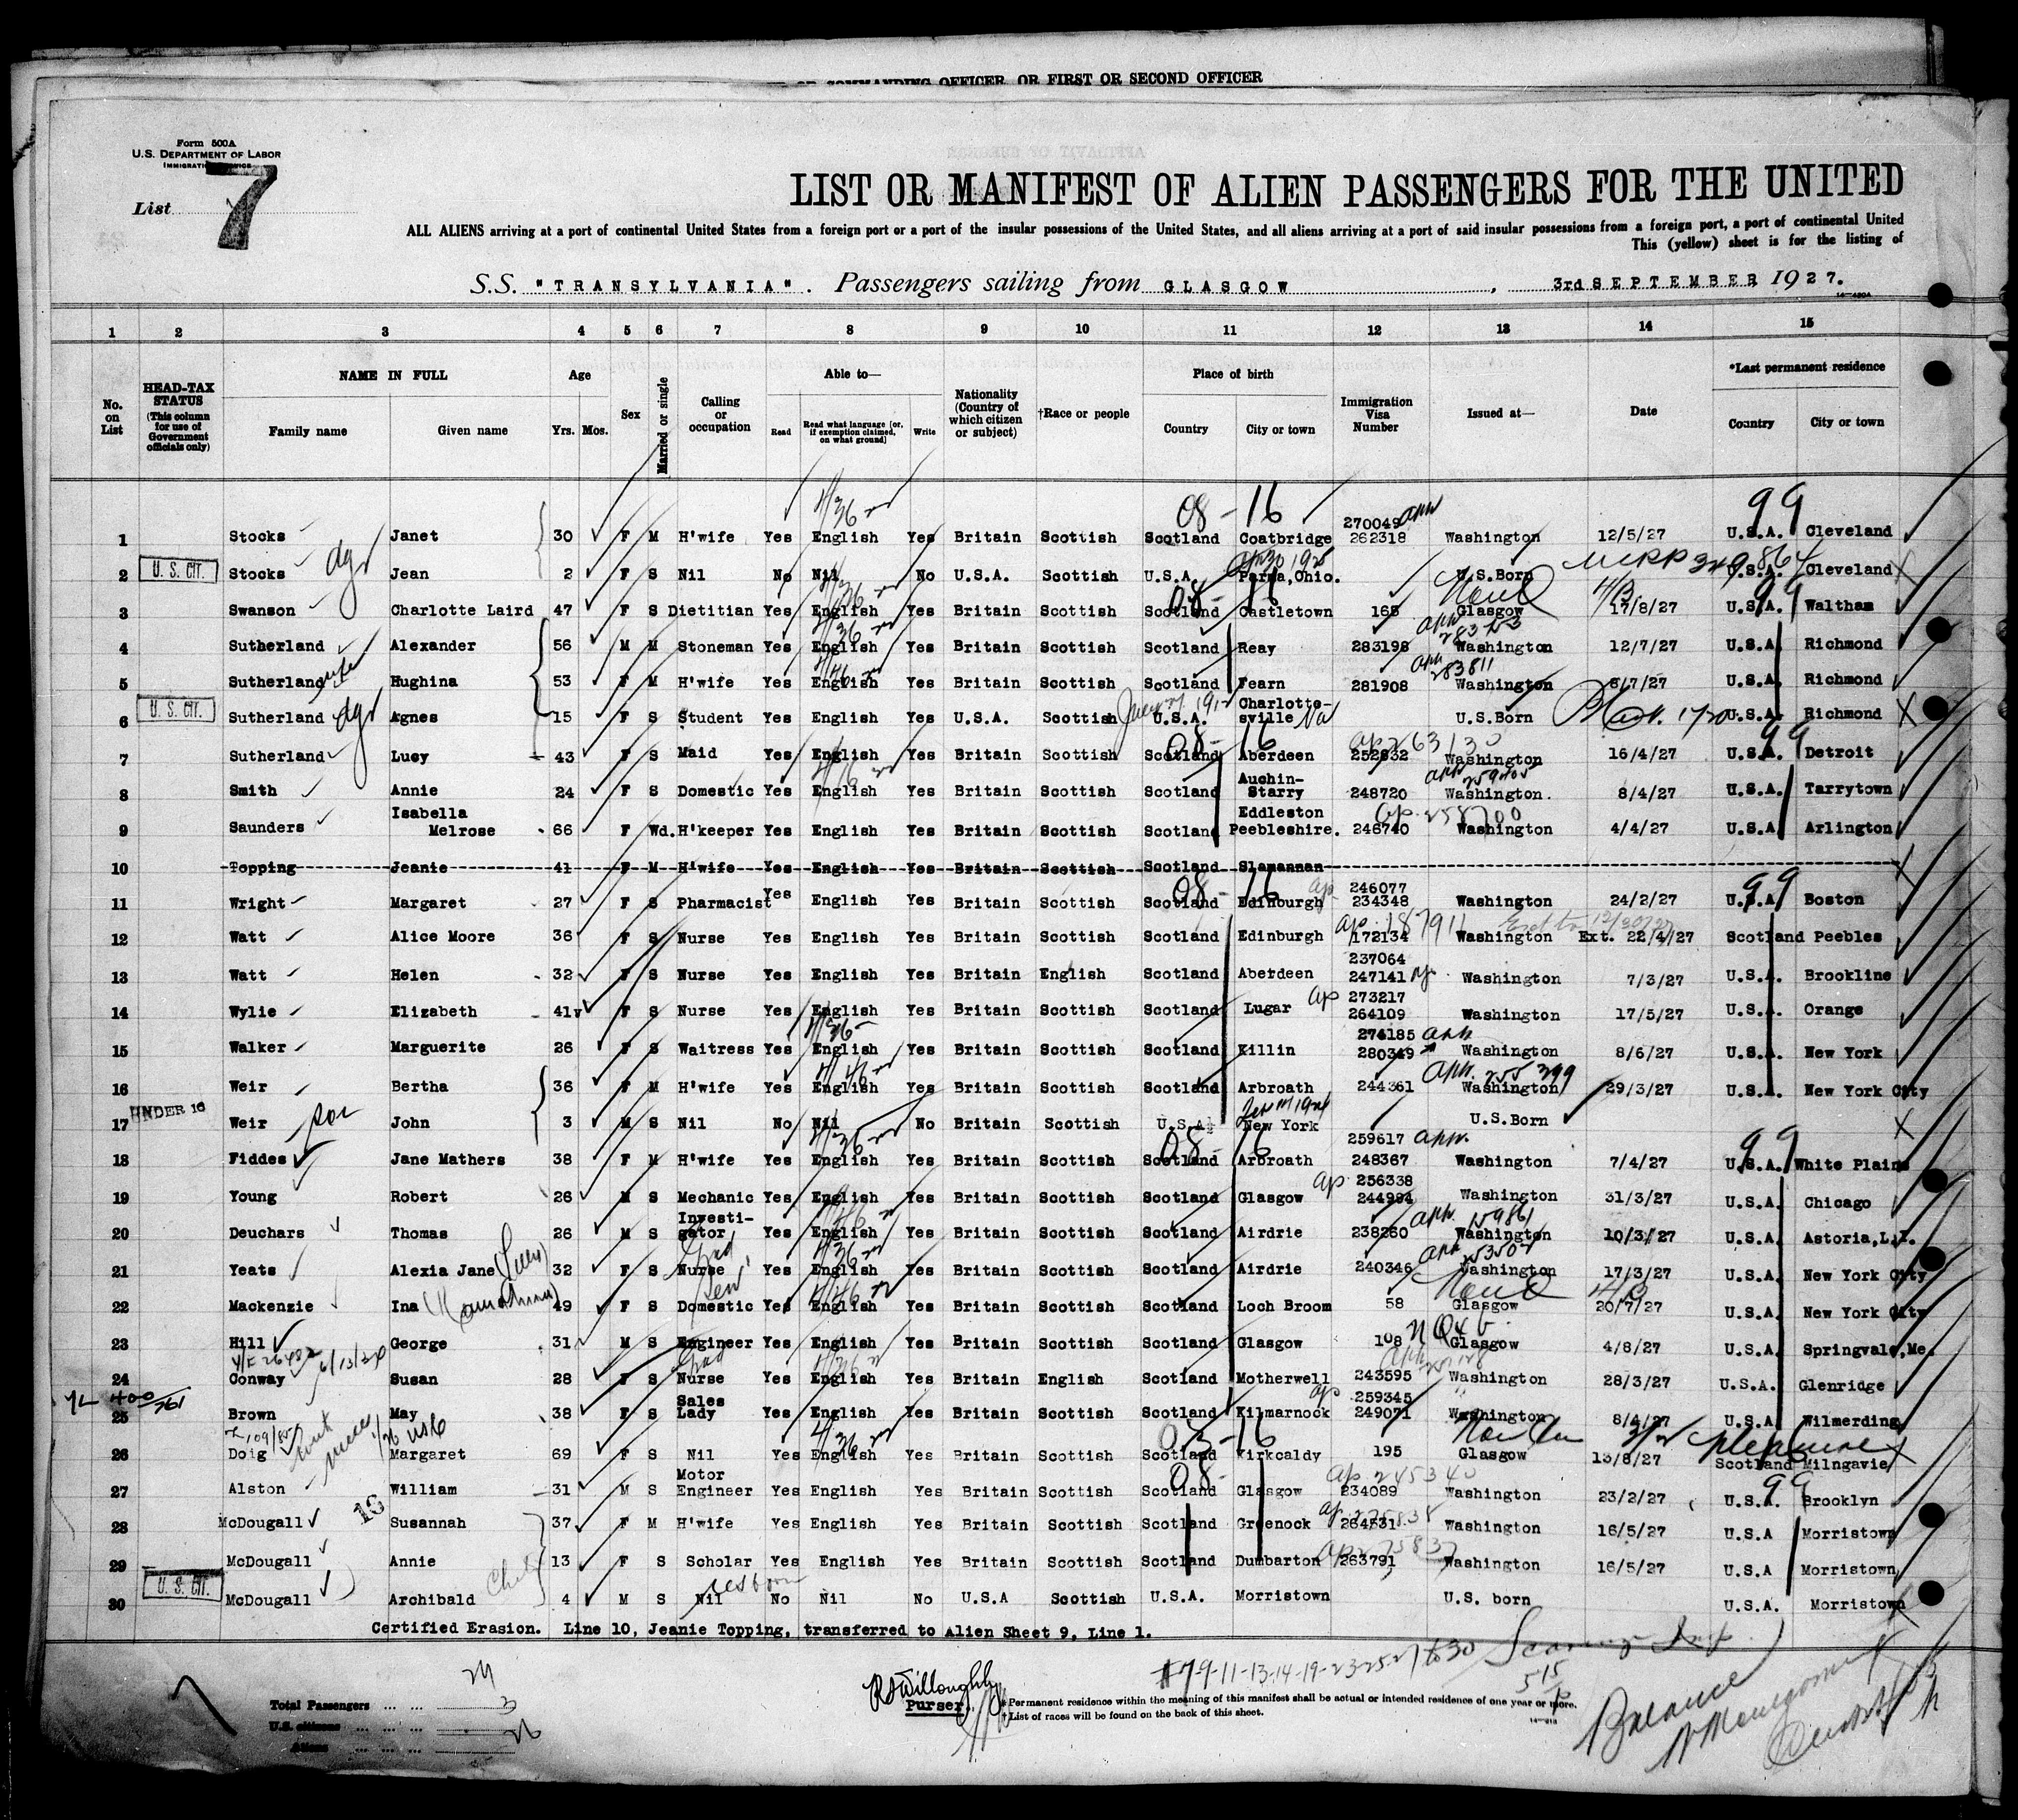 OR COMMANDING OFFICER OR FIRST OR SECOND OFFICER
Form 500A
U.S. DEPARTMENT OF LABOR
IMMIGRATION SERVICE
List 7
LIST OR MANIFEST OF ALIEN PASSENGERS FOR THE UNITED
ALL ALIENS arriving at a port of continental United States from a foreign port or a port of the insular possessions of the United States, and all aliens arriving at a port of said insular possessions from a foreign port, a port of continental United
This (yellow) sheet is for the listing of
S.S. "TRANSYLVANIA". Passengers sailing from GLASGOW, 3rd SEPTEMBER 1927.
14—430A
1 2 3 4 5 6 7 8 9 10 11 12 13 14 15
No. on List
HEAD-TAX STATUS (This column for use of Government officials only)
NAME IN FULL
Family name Given name
Age
Yrs. Mos.
Sex
Married or single
Calling or occupation
Able to—
Read Read what language (or, if exemption claimed, on what ground) Write
Nationality (Country of which citizen or subject)
†Race or people
Place of birth
Country City or town
Immigration Visa Number
Issued at—
Date
*Last permanent residence
Country City or town
08 - 16 99
1 Stocks Janet 30 F M H'wife Yes English Yes Britain Scottish Scotland Coatbridge 270049 262318 Washington 12/5/27 U.S.A. Cleveland
2 U. S. CIT. Stocks Jean 2 F S Nil No Nil No U.S.A. Scottish U.S.A. Parma, Ohio. U.S.Born U.S.A. Cleveland
3 Swanson Charlotte Laird 47 F S Dietitian Yes English Yes Britain Scottish Scotland Castletown 165 Glasgow 17/8/27 U.S.A. Waltham
4 Sutherland Alexander 56 M M Stoneman Yes English Yes Britain Scottish Scotland Reay 283198 Washington 12/7/27 U.S.A. Richmond
5 Sutherland wife Hughina 53 F M H'wife Yes English Yes Britain Scottish Scotland Fearn 281908 283811 Washington 8/7/27 U.S.A. Richmond
6 U. S. CIT. Sutherland Agnes 15 F S Student Yes English Yes U.S.A. Scottish U.S.A. Charlottesville Va U.S.Born U.S.A. Richmond
7 Sutherland Lucy 43 F S Maid Yes English Yes Britain Scottish Scotland Aberdeen 252832 263130 Washington 16/4/27 U.S.A. Detroit
8 Smith Annie 24 F S Domestic Yes English Yes Britain Scottish Scotland Auchin-Starry 248720 Washington. 8/4/27 U.S.A. Tarrytown
9 Saunders Isabella Melrose 66 F Wd. H'keeper Yes English Yes Britain Scottish Scotland Eddleston Peebleshire. 246740 258700 Washington 4/4/27 U.S.A. Arlington
10 Topping Jeanie 41 F M H'wife Yes English Yes Britain Scottish Scotland Slamannan
11 Wright Margaret 27 F S Pharmacist Yes English Yes Britain Scottish Scotland Edinburgh 246077 234348 Washington 24/2/27 U.S.A. Boston
12 Watt Alice Moore 36 F S Nurse Yes English Yes Britain Scottish Scotland Edinburgh 172134 187911 Washington Ext. 22/4/27 Scotland Peebles
13 Watt Helen 32 F S Nurse Yes English Yes Britain English Scotland Aberdeen 237064 247141 Washington 7/3/27 U.S.A. Brookline
14 Wylie Elizabeth 41 F S Nurse Yes English Yes Britain Scottish Scotland Lugar 273217 264109 Washington 17/5/27 U.S.A. Orange
15 Walker Marguerite 26 F S Waitress Yes English Yes Britain Scottish Scotland Killin 274185 280349 Washington 8/6/27 U.S.A. New York
16 Weir Bertha 36 F M H'wife Yes English Yes Britain Scottish Scotland Arbroath 244361 Washington 29/3/27 U.S.A. New York City
17 UNDER 16 Weir John 3 M S Nil No Nil No Britain Scottish U.S.A. New York U.S.Born
18 Fiddes Jane Mathers 38 F M H'wife Yes English Yes Britain Scottish Scotland Arbroath 259617 248367 Washington 7/4/27 U.S.A. White Plains
19 Young Robert 26 M S Mechanic Yes English Yes Britain Scottish Scotland Glasgow 256338 244984 Washington 31/3/27 U.S.A. Chicago
20 Deuchars Thomas 26 M S Investigator Yes English Yes Britain Scottish Scotland Airdrie 238260 Washington 10/3/27 U.S.A. Astoria,L.I.
21 Yeats Alexia Jane 32 F S Nurse Yes English Yes Britain Scottish Scotland Airdrie 240346 Washington 17/3/27 U.S.A. New York City
22 Mackenzie Ina 49 F S Domestic Yes English Yes Britain Scottish Scotland Loch Broom 58 Glasgow 20/7/27 U.S.A. New York City
23 Hill George 31 M S Engineer Yes English Yes Britain Scottish Scotland Glasgow 108 Glasgow 4/8/27 U.S.A. Springvale,Me.
24 Conway Susan 28 F S Nurse Yes English Yes Britain English Scotland Motherwell 243595 Washington 28/3/27 U.S.A. Glenridge
25 Brown May 38 F S Sales Lady Yes English Yes Britain Scottish Scotland Kilmarnock 259345 249071 Washington 8/4/27 U.S.A. Wilmerding
26 Doig Margaret 69 F S Nil Yes English Yes Britain Scottish Scotland Kirkcaldy 195 Glasgow 13/8/27 pleasure Scotland Milngavie
27 Alston William 31 M S Motor Engineer Yes English Yes Britain Scottish Scotland Glasgow 234089 245340 Washington 23/2/27 U.S.A. Brooklyn
28 McDougall Susannah 37 F M H'wife Yes English Yes Britain Scottish Scotland Greenock 264531 Washington 16/5/27 U.S.A Morristown
29 McDougall Annie 13 F S Scholar Yes English Yes Britain Scottish Scotland Dumbarton 263791 Washington 16/5/27 U.S.A Morristown
30 U. S. CIT. McDougall Archibald 4 M S Nil No Nil No U.S.A Scottish U.S.A. Morristown U.S. born U.S.A. Morristown
Certified Erasion. Line 10, Jeanie Topping, transferred to Alien Sheet 9, Line 1.
7-9-11-13-14-19-23-25-27 to 30
Total Passengers ... ...
U.S. citizens ... ... ... 3
Aliens ... ... ... 26
R Willoughby
Purser.
* Permanent residence within the meaning of this manifest shall be actual or intended residence of one year or more.
† List of races will be found on the back of this sheet.
Balance